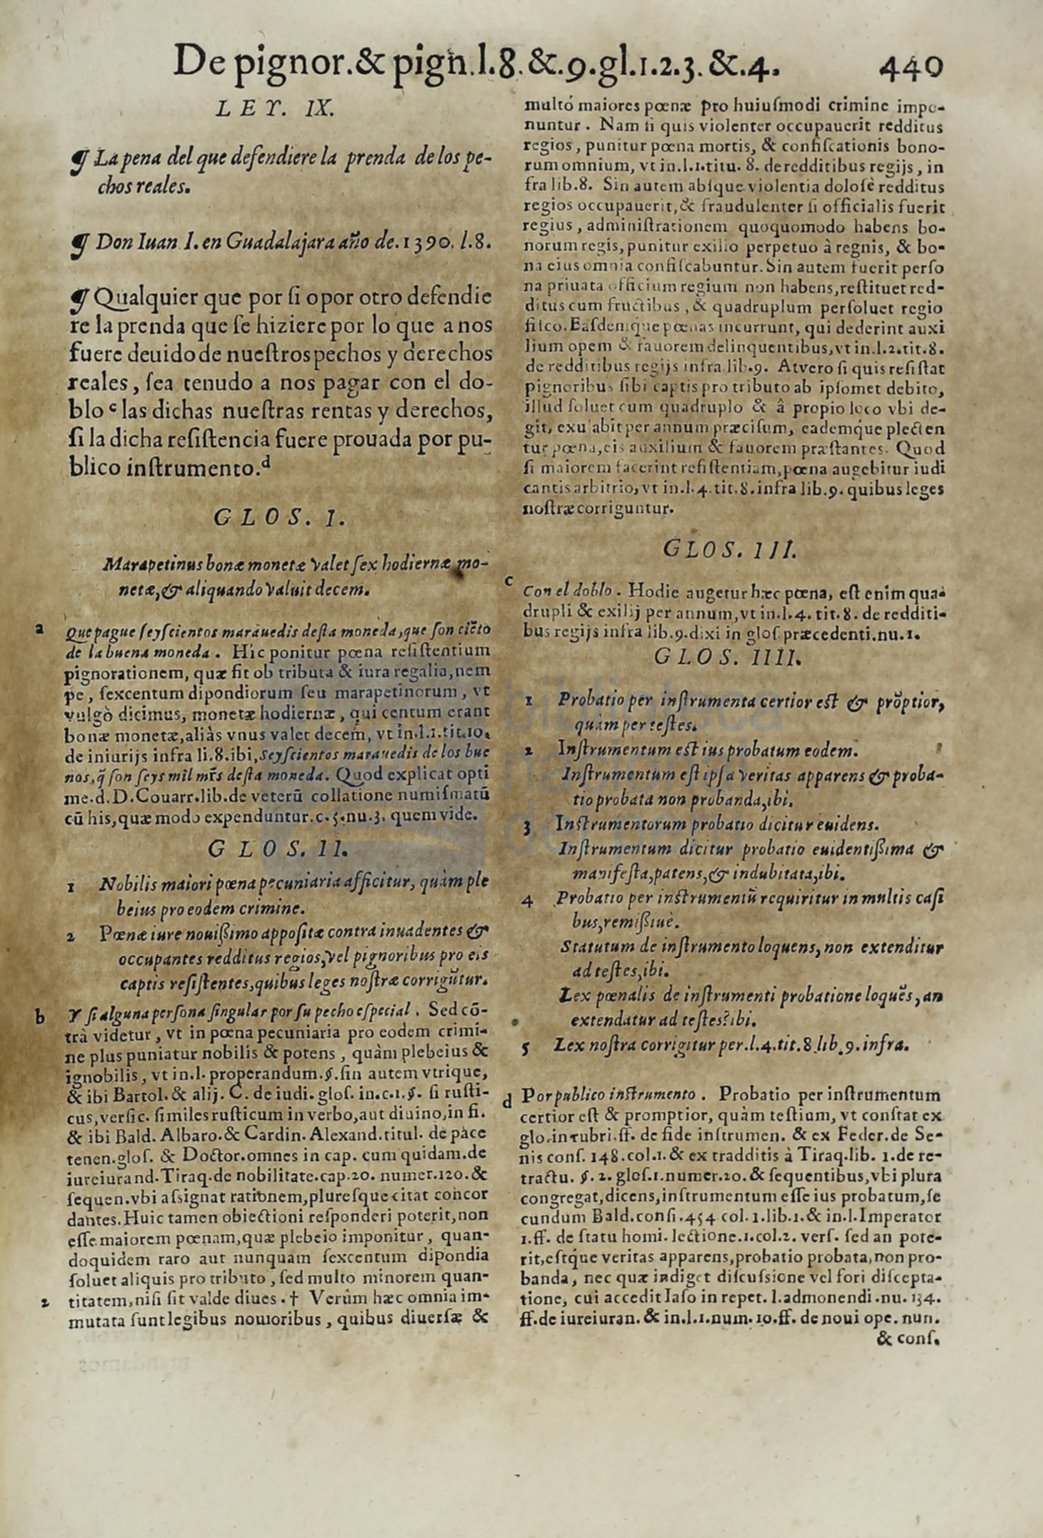 De pignor.& pign.l.8.&.9.gl.1.2.3.&.4. 440
LET. IX.
¶ La pena del que defendiere la prenda de los pe-
chos reales.
¶ Don Iuan I. en Guadalajara año de.1390. l.8.
¶ Qualquier que por ſi o por otro defendie
re la prenda que ſe hiziere por lo que a nos
fuere deuido de nueſtros pechos y derechos
reales, ſea tenudo a nos pagar con el do-
blo c las dichas nueſtras rentas y derechos,
ſi la dicha reſiſtencia fuere prouada por pu-
blico inſtrumento.d
GLOS. I.
Marapetinus bonæ monetæ valet ſex hodiernæ mo-
netæ, & aliquando valuit decem.
a Que pague ſeyſcientos marauedis deſta moneda, que ſon ciẽto
de la buena moneda. Hic ponitur pœna reſiſtentium
pignorationem, quæ fit ob tributa & iura regalia, nem
pe, ſexcentum dipondiorum ſeu marapetinorum, vt
vulgò dicimus, monetæ hodiernæ, qui centum erant
bonæ monetæ, aliàs vnus valet decem, vt in.l.1.tit.10.
de iniurijs infra li.8.ibi, Seyſcientos marauedis de los bue
nos, q̃ ſon ſeys mil mr̃s deſta moneda. Quod explicat opti
me.d.D.Couarr.lib.de veterũ collatione numiſmatũ
cũ his, quæ modo expenduntur.c.5.nu.3. quem vide.
GLOS. II.
1 Nobilis maiori pœna pecuniaria afficitur, quàm ple
beius pro eodem crimine.
2 Pœnæ iure nouißimo appoſitæ contra inuadentes &
occupantes redditus regios, vel pignoribus pro eis
captis reſiſtentes, quibus leges noſtræ corrigũtur.
b Y ſi alguna perſona ſingular por ſu pecho eſpecial. Sed cõ-
trà videtur, vt in pœna pecuniaria pro eodem crimi-
ne plus puniatur nobilis & potens, quàm plebeius &
ignobilis, vt in.l. properandum.§.ſin autem vtrique,
& ibi Bartol.& alij. C. de iudi. gloſ. in.c.1.§. ſi ruſti-
cus, verſic. ſimiles ruſticum in verbo, aut diuino, in fi.
& ibi Bald. Albaro.& Cardin. Alexand.titul. de pace
tenen.gloſ. & Doctor.omnes in cap. cum quidam.de
iureiurand.Tiraq.de nobilitate.cap.20. numer.120.&
ſequen.vbi aſsignat rationem, plureſque citat concor
dantes. Huic tamen obiectioni reſponderi poterit, non
eſſe maiorem pœnam, quæ plebeio imponitur, quan-
doquidem raro aut nunquam ſexcentum dipondia
ſoluet aliquis pro tributo, ſed multo minorem quan-
2 titatem, niſi ſit valde diues.† Verùm hæc omnia im-
mutata ſunt legibus nouioribus, quibus diuerſæ &
multò maiores pœnæ pro huiuſmodi crimine impo-
nuntur. Nam ſi quis violenter occupauerit redditus
regios, punitur pœna mortis, & confiſcationis bono-
rum omnium, vt in.l.1.titu. 8. de redditibus regijs, in
fra lib.8. Sin autem abſque violentia doloſè redditus
regios occupauerit, & fraudulenter ſi officialis fuerit
regius, adminiſtrationem quoquomodo habens bo-
norum regis, punitur exilio perpetuo à regnis, & bo-
na eius omnia confiſcabuntur. Sin autem fuerit perſo
na priuata officium regium non habens, reſtituet red-
ditus cum fructibus, & quadruplum perſoluet regio
fiſco. Eaſdemque pœnas incurrunt, qui dederint auxi
lium opem & fauorem delinquentibus, vt in.l.2.tit.8.
de redditibus regijs infra lib.9. At vero ſi quis reſiſtat
pignoribus ſibi captis pro tributo ab ipſomet debito,
illud ſoluet cum quadruplo & à propio loco vbi de-
git, exulabit per annum præciſum, eademque plecten
tur pœna, eis auxilium & fauorem præſtantes. Quod
ſi maiorem fecerint reſiſtentiam, pœna augebitur iudi
cantis arbitrio, vt in.l.4.tit.8.infra lib.9. quibus leges
noſtræ corriguntur.
GLOS. III.
c Con el doblo. Hodie augetur hæc pœna, eſt enim qua-
drupli & exilij per annum, vt in.l.4. tit.8. de redditi-
bus regijs infra lib.9.dixi in gloſ.præcedenti.nu.1.
GLOS. IIII.
1 Probatio per inſtrumenta certior eſt & prõptior,
quàm per teſtes.
2 Inſtrumentum eſt ius probatum eodem.
Inſtrumentum eſt ipſa veritas apparens & proba-
tio probata non probanda, ibi.
3 Inſtrumentorum probatio dicitur euidens.
Inſtrumentum dicitur probatio euidentißima &
manifeſta, patens, & indubitata, ibi.
4 Probatio per inſtrumentũ requiritur in multis caſi
bus, remißiuè.
Statutum de inſtrumento loquens, non extenditur
ad teſtes, ibi.
Lex pœnalis de inſtrumenti probatione loquẽs, an
extendatur ad teſtes? ibi.
5 Lex noſtra corrigitur per.l.4.tit.8.lib.9.infra.
d Por publico inſtrumento. Probatio per inſtrumentum
certior eſt & promptior, quàm teſtium, vt conſtat ex
glo.in rubri.ff. de fide inſtrumen. & ex Feder.de Se-
nis conſ. 148.col.1.& ex tradditis à Tiraq.lib. 1.de re-
tractu. §.2. gloſ.1.numer.20.& ſequentibus, vbi plura
congregat, dicens, inſtrumentum eſſe ius probatum, ſe
cundum Bald.conſi.454 col.1.lib.1.& in.l.Imperator
1.ff. de ſtatu homi. lectione.1.col.2. verſ. ſed an pote-
rit, eſtque veritas apparens, probatio probata, non pro-
banda, nec quæ indiget diſcuſsione vel fori diſcepta-
tione, cui accedit Iaſo in repet. l.admonendi.nu. 134.
ff.de iureiuran. & in.l.1.num.10.ff. de noui ope. nun.
& conſ.